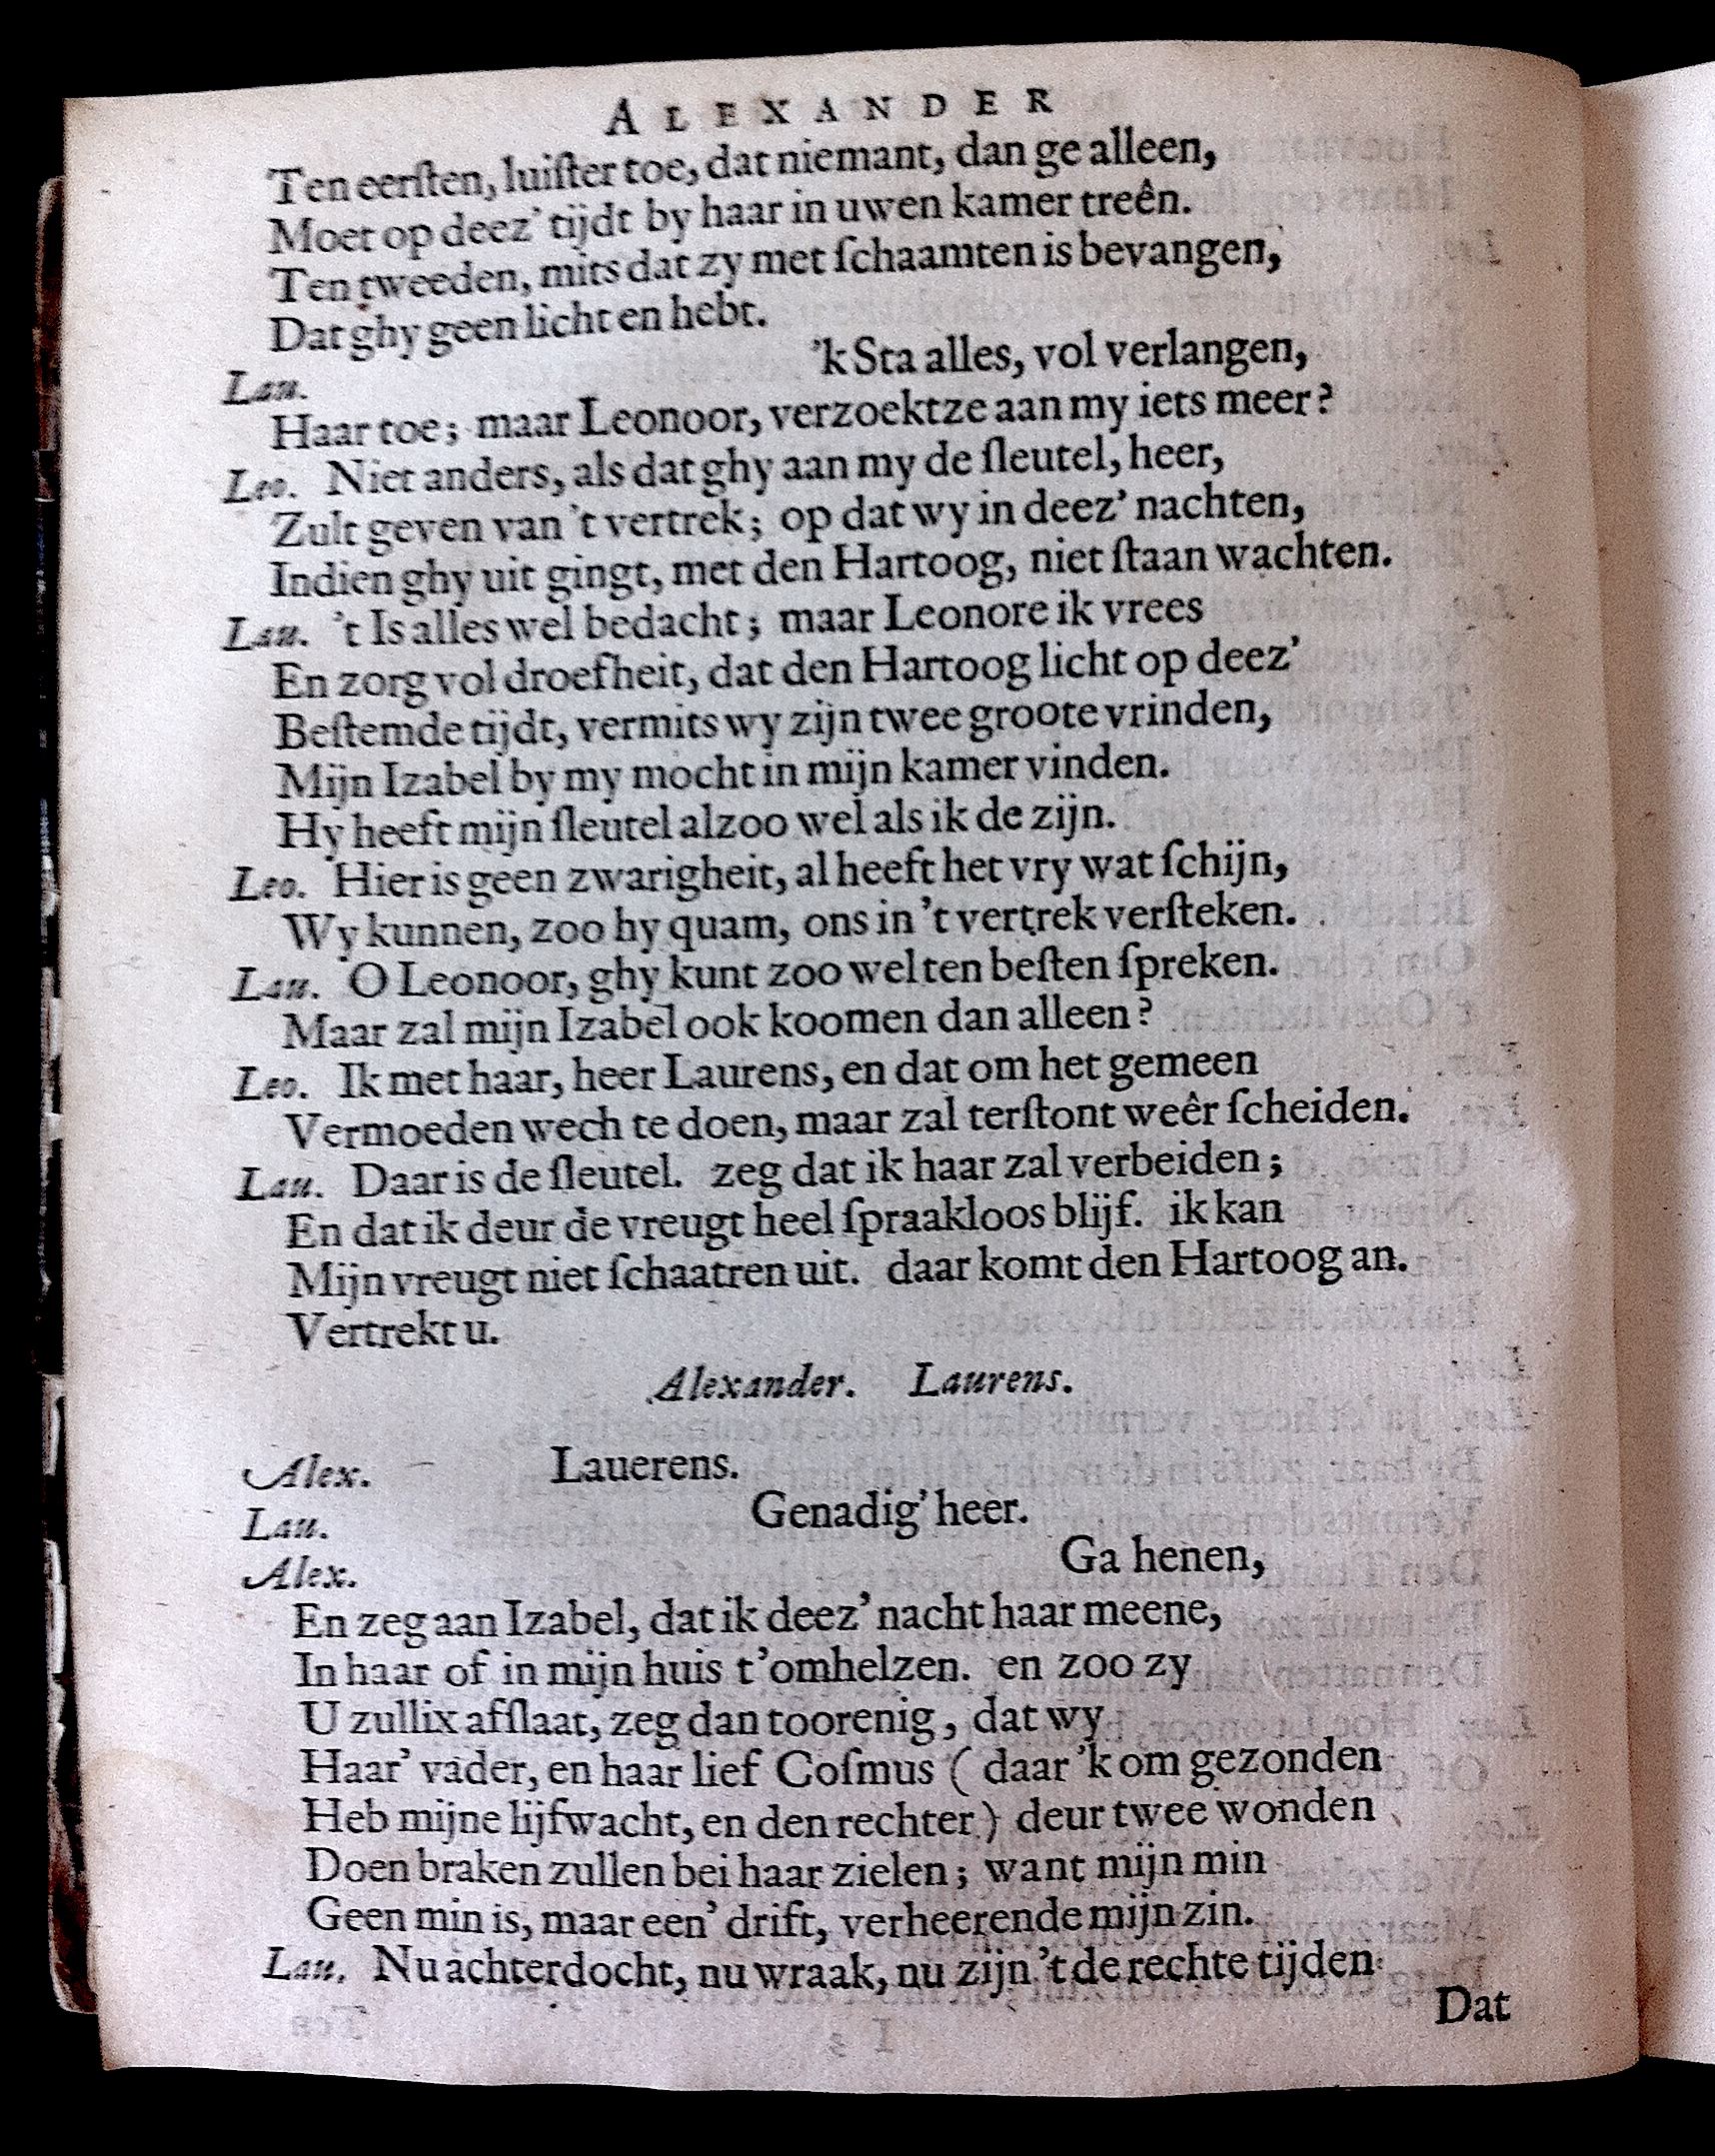 ALEXANDER
Ten eerſten, luiſter toe, dat niemant, dan ge alleen,
Moet op deez' tijdt by haar in uwen kamer treên.
Ten tweeden, mits dat zy met ſchaamten is bevangen,
Dat ghy geen licht en hebt.
Lau. 'k Sta alles, vol verlangen,
Haar toe; maar Leonoor, verzoektze aan my iets meer?
Leo. Niet anders, als dat ghy aan my de ſleutel, heer,
Zult geven van 't vertrek; op dat wy in deez' nachten,
Indien ghy uit gingt, met den Hartoog, niet ſtaan wachten.
Lau. 't Is alles wel bedacht; maar Leonore ik vrees
En zorg vol droefheit, dat den Hartoog licht op deez'
Beſtemde tijdt, vermits wy zijn twee groote vrinden,
Mijn Izabel by my mocht in mijn kamer vinden.
Hy heeft mijn ſleutel alzoo wel als ik de zijn.
Leo. Hier is geen zwarigheit, al heeft het vry wat ſchijn,
Wy kunnen, zoo hy quam, ons in 't vertrek verſteken.
Lau. O Leonoor, ghy kunt zoo wel ten beſten ſpreken.
Maar zal mijn Izabel ook koomen dan alleen?
Leo. Ik met haar, heer Laurens, en dat om het gemeen
Vermoeden wech te doen, maar zal terſtont weêr ſcheiden.
Lau. Daar is de ſleutel. zeg dat ik haar zal verbeiden;
En dat ik deur de vreugt heel ſpraakloos blijf. ik kan
Mijn vreugt niet ſchaatren uit. daar komt den Hartoog an.
Vertrekt u.
Alexander. Laurens.
Alex. Lauerens.
Lau. Genadig' heer.
Alex. Ga henen,
En zeg aan Izabel, dat ik deez' nacht haar meene,
In haar of in mijn huis t'omhelzen. en zoo zy
U zullix afſlaat, zeg dan toorenig, dat wy
Haar' vader, en haar lief Coſmus ( daar 'k om gezonden
Heb mijne lijfwacht, en den rechter ) deur twee wonden
Doen braken zullen bei haar zielen; want mijn min
Geen min is, maar een' drift, verheerende mijn zin.
Lau. Nu achterdocht, nu wraak, nu zijn 't de rechte tijden
Dat